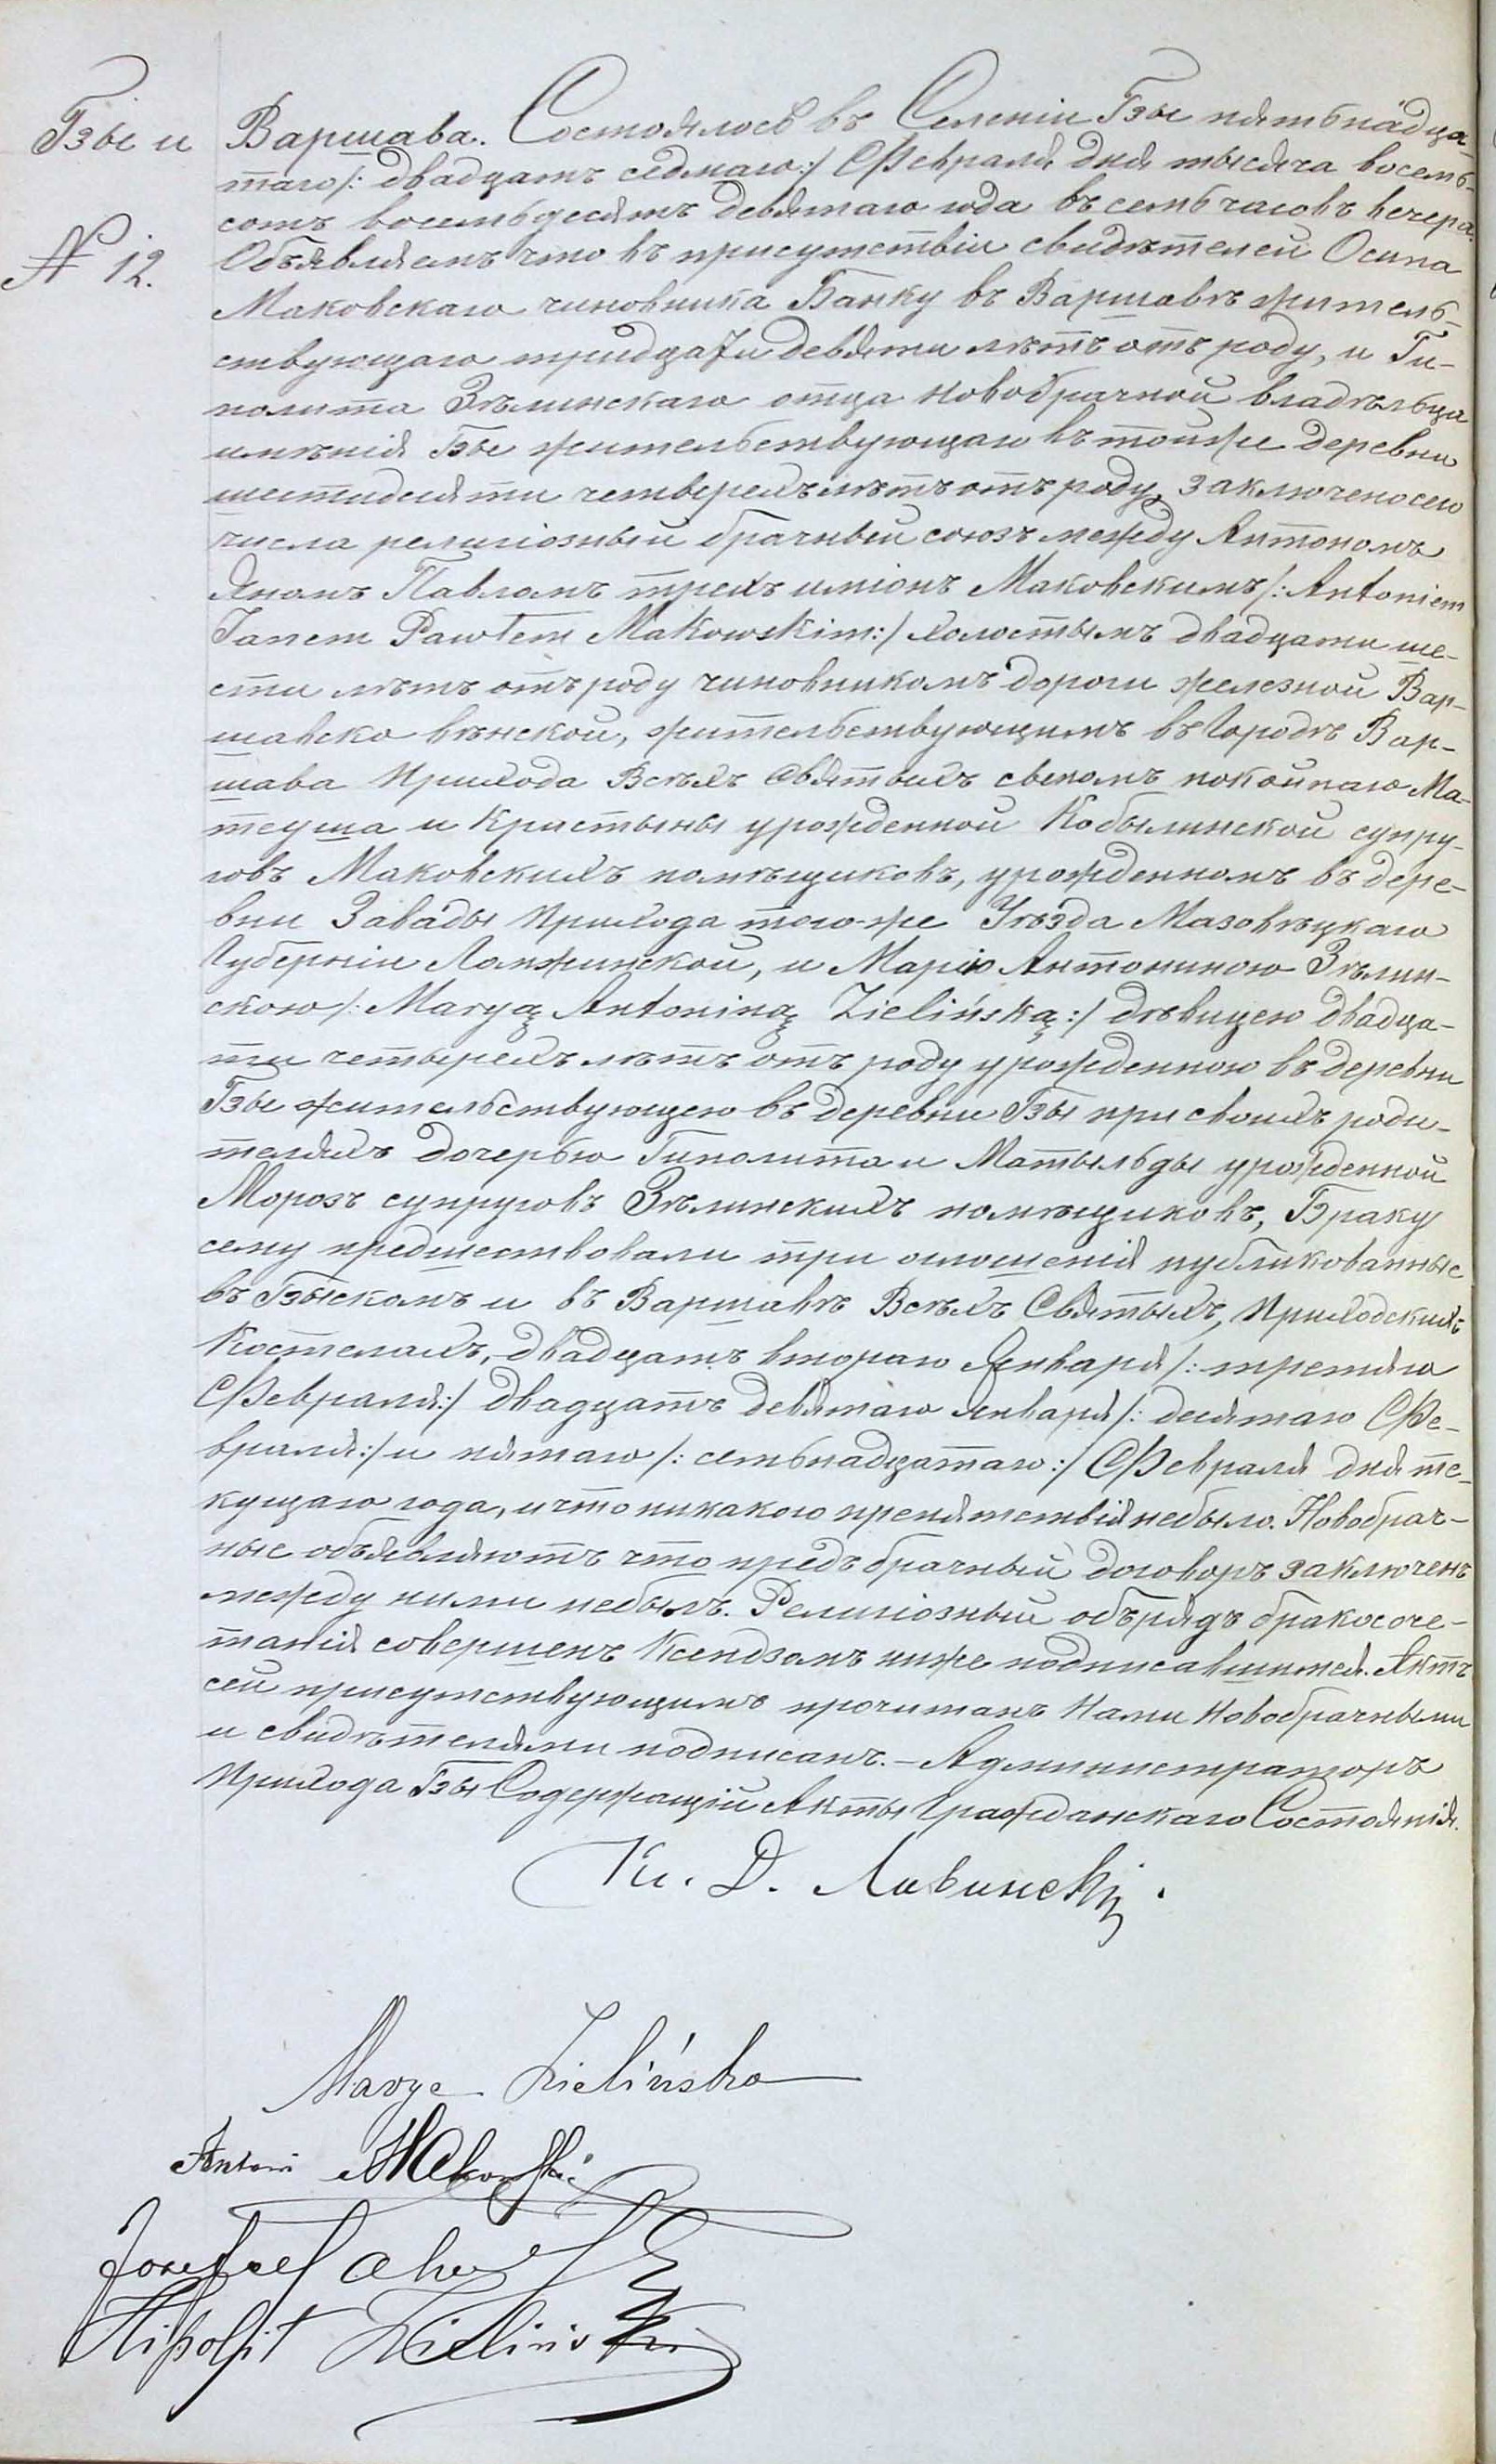 Гзы и Варшава. Состоялось въ Селеніи Гзы пятьнадца-
№ 12. таго /: двадцать седмаго :/ Февраля дня тысяча восемь-
сотъ восемьдесятъ девятаго года въ семь часовъ вечера.
Объявляемъ что въ присутствіи свидѣтелей Осипа
Маковскаго чиновника Банку въ Варшавѣ житель-
ствующаго тридцати девяти лѣтъ отъ роду, и Ги-
полита Зѣлинскаго отца новобрачной владѣльца
имѣнія Гзы жительствующаго въ тойже деревни
шестидесяти четверехъ лѣтъ отъ роду, заключено сего
числа религіозный брачный союзъ между Антономъ
Яномъ Павломъ трехъ иміонъ Маковскимъ /: Antoniem
Janem Pawłem Makowskim :/ холостымъ двадцати ше-
сти лѣтъ отъ роду чиновникомъ дороги железной Вар-
шавско вѣнской, жительствующимъ въ Городѣ Вар-
шава Прихода Всѣхъ Святыхъ сыномъ покойнаго Ма-
теуша и Кристыны урожденной Кобылинской супру-
говъ Маковскихъ помѣщиковъ, урожденномъ въ дере-
вни Завады Прихода того-же Уѣзда Мазовѣцкаго
Губерніи Ломжинской, и Марію Антониною Зѣлин-
скою /: Maryą Antoniną Zielińską :/ дѣвицею двадца-
ти четырехъ лѣтъ отъ роду урожденною въ деревни
Гзы жительствующею въ деревни Гзы при своихъ роди-
теляхъ дочерью Гиполита и Матыльды урожденной
Морозъ супруговъ Зѣлинскихъ помѣщиковъ, Браку
сему предшествовали три оглошенія публикованные
въ Гзыскомъ и въ Варшавѣ Всѣхъ Святыхъ, Приходскихъ
Костелахъ, двадцать втораго Января /: третяго
Февраля :/ двадцать девятаго Января /: десятаго Фе-
враля :/ и пятаго /: семьнадцатаго :/ Февраля дня те-
кущаго года, и что никакого препятствія небыло. Новобрач-
ные объявляютъ что предъ брачный договоръ заключенъ
между ними небылъ. Религіозный обърядъ бракосоче-
танія совершенъ Ксендзомъ ниже подписавшимся. Актъ
сей присутствующимъ прочитанъ Нами Новобрачными
и свидѣтелями подписанъ. – Администраторъ
Прихода Гзы Содержащій Акты Гражданскаго Состоянія.
Кс. D.
Marya Zielińska
Antoni Makowski
Józef Makowski
Hipolit Zieliński